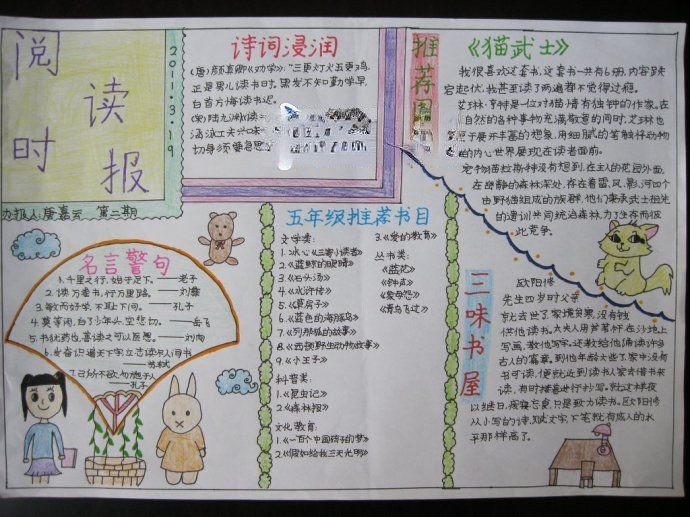 阅读时报
2011.3.19
办报人:唐嘉云 第二期
诗词浸润
(唐)颜真卿《劝学》:“三更灯火五更鸡,
正是男儿读书时。黑发不知勤学早,
白首方悔读书迟。
推荐
《猫武士》
我很喜欢这套书,这套书一共有6册,内容跌
宕起伏,我甚至读了两遍都不觉得过瘾。
艾琳·亨特是一位对猫情有独钟的作家。在
自然的各种事物充满敬意的同时,艾琳也
展示丰富的想象,用细腻的笔触将动物
的内心世界展现在读者面前。
宠物猫拉斯特没有想到,在主人的花园外面,
在幽静的森林深处,存在着雷、风、影、河四个
由野猫组成的族群,他们秉承武士祖先
的遗训共同统治森林,为了生存而彼
此竞争。
名言警句
1.千里之行,始于足下。——老子
2.读万卷书,行万里路。——刘彝
3.敏而好学,不耻下问。——孔子
4.莫等闲,白了少年头,空悲切。——岳飞
5.书犹药也,善读之可以医愚。——刘向
6.发奋识遍天下字,立志读尽人间书
——苏轼
7.己所不欲,勿施于人
——孔子
五年级推荐书目
文学类:
1.冰心《三寄小读者》
2.《蓝鲸的眼睛》
3.《石头汤》
4.《水浒传》
5.《草房子》
6.《蓝色的海豚岛》
7.《列那狐的故事》
8.《西顿野生动物故事》
9.《小王子》
科普类:
1.《昆虫记》
2.《森林报》
文化教育:
1.《一百个中国孩子的梦》
2.《假如给我三天光明》
3.《爱的教育》
丛书类:
《蓝花》
《钟声》
《爱母怨》
《青鸟飞过》
三味书屋
欧阳修
先生四岁时父亲
就去世了,家境贫寒,没有钱
供他读书。太夫人用芦苇杆在沙地上
写画,教他写字。还教给他诵读许多
古人的篇章。到他年龄大些了,家中没有
书可读,便就近到读书人家去借书来
读,有时接着进行抄写。就这样夜
以继日,废寝忘食,只是致力读书。欧阳修
从小写的诗、赋文字,下笔就有成人的水
平,那样高了。